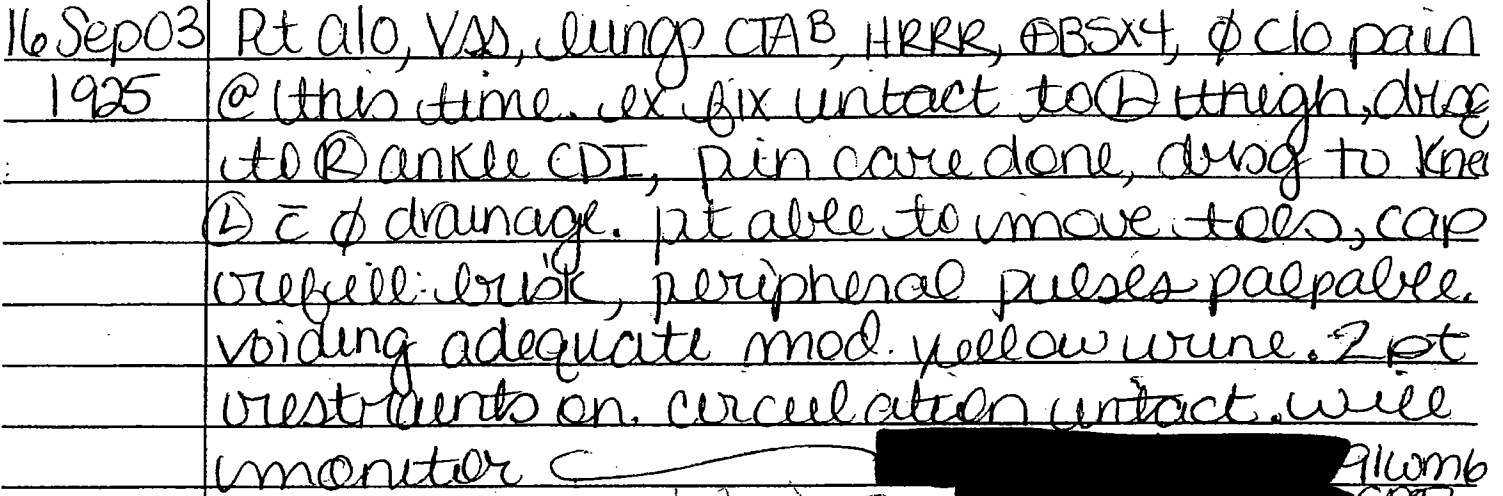 16 Sep 03 Pt a/o, VSS, lungs CTAB, HRRR, ⊕BSX4, ∅ c/o pain
1925 @ this time. ex fix intact to Ⓛ thigh, drsg
to Ⓡ ankle CDI, pin care done, drsg to Knee
Ⓛ c̄ ∅ drainage. pt able to move toes, cap
refill brisk, peripheral pulses palpable.
voiding adequate mod. yellow urine. 2 pt
restraints on. circulation intact. will
monitor 91wm6